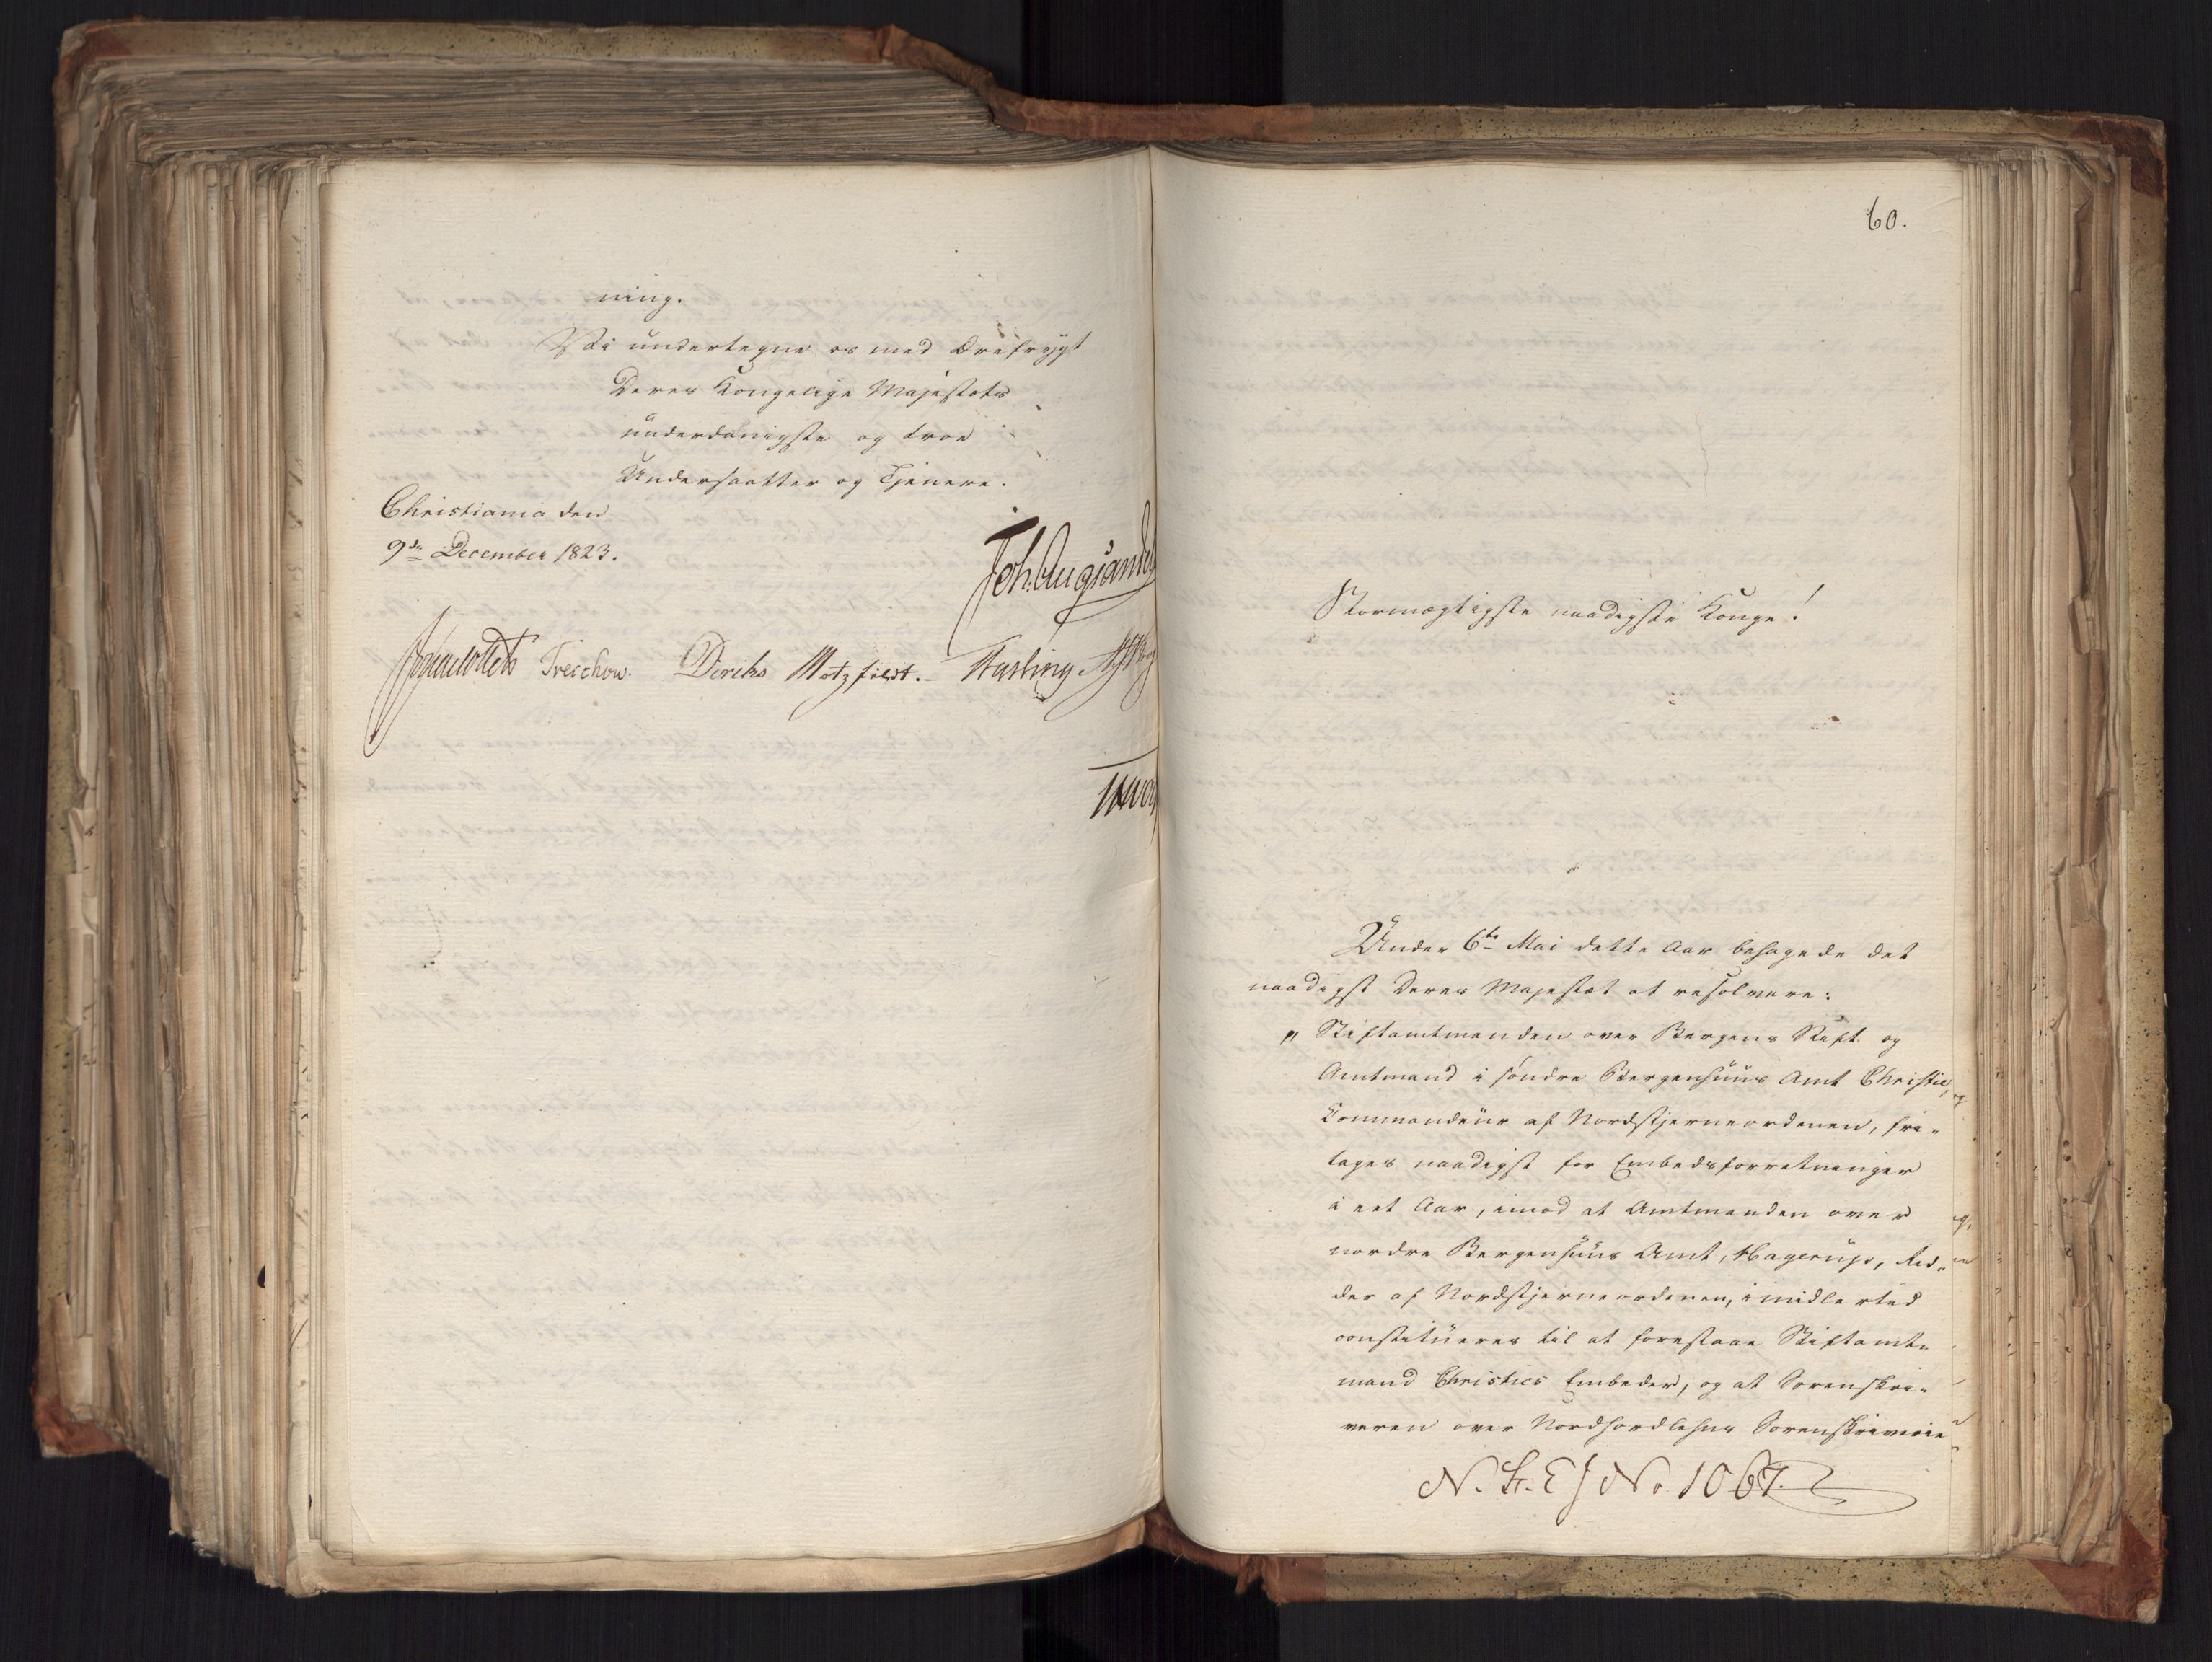 ning.
Vi undertegne os med Ærefrygt
Deres Kongelige Majestæts
underdanigste og troe
Undersaatter og Tjenere.
Christiania den
9de December 1823.
Joh. Aug. Sandels
Collett Treschow. Diriks Motzfeldt. Fasting
60.
Stormægtigste naadigste Konge!
Under 6te Mai dette Aar behagede det
naadigst Deres Majestæt at resolvere:
„Stiftamtmanden over Bergens Stift og
Amtmand i søndre Bergenhuus Amt Christie,
Commandeur af Nordstjerneordenen, fri-
tages naadigst for Embedsforretninger
i eet Aar, imod at Amtmanden over
nordre Bergenhuus Amt, Hagerup, Rid-
der af Nordstjerneordenen, imidlertid
constitueres til at forestaae Stiftamt-
mand Christies Embeder, og at Sorenskri-
veren over Nordhordlehns Sorenskriverie
No. 1067.